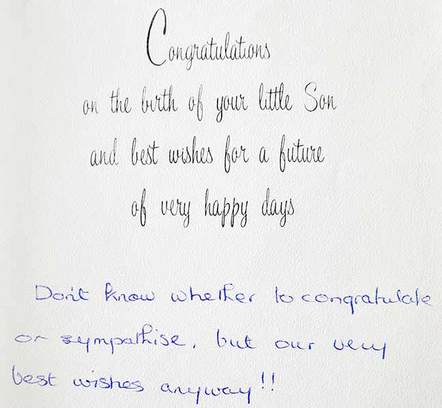 Congratulations
on the birth of your little Son
and best wishes for a future
of very happy days
Don't know whether to congratulate
or sympathise, but our very
best wishes anyway!!